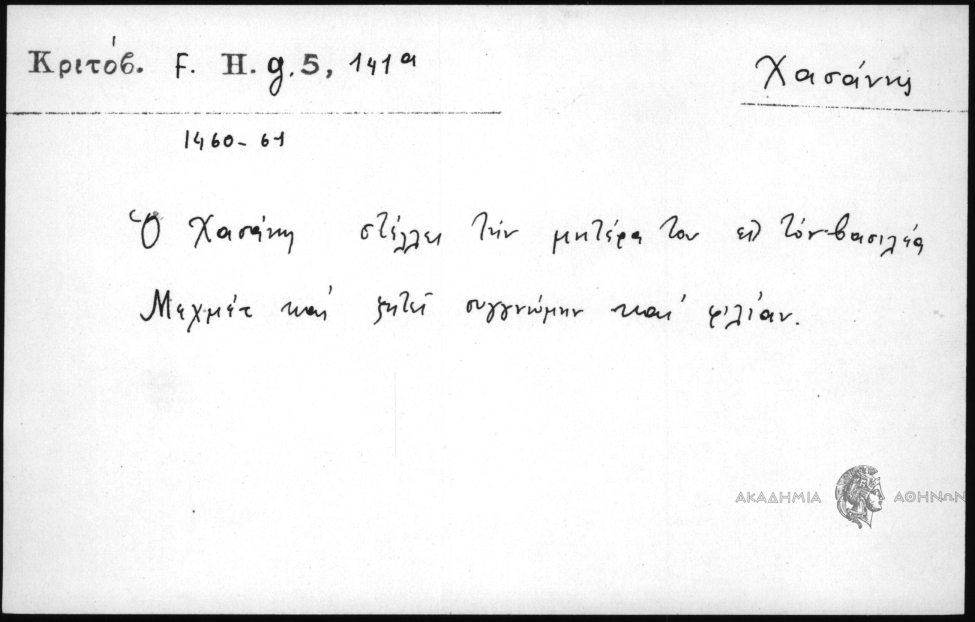 Κριτόβ. F. H. g. 5, 141α
Χασάνης
1460-61
Ὁ Χασάνης στέλλει τὴν μητέρα του εἰς τὸν βασιλέα
Μεχμὲτ καὶ ζητεῖ συγγνώμην καὶ φιλίαν.
ΑΚΑΔΗΜΙΑ ΑΘΗΝΩΝ